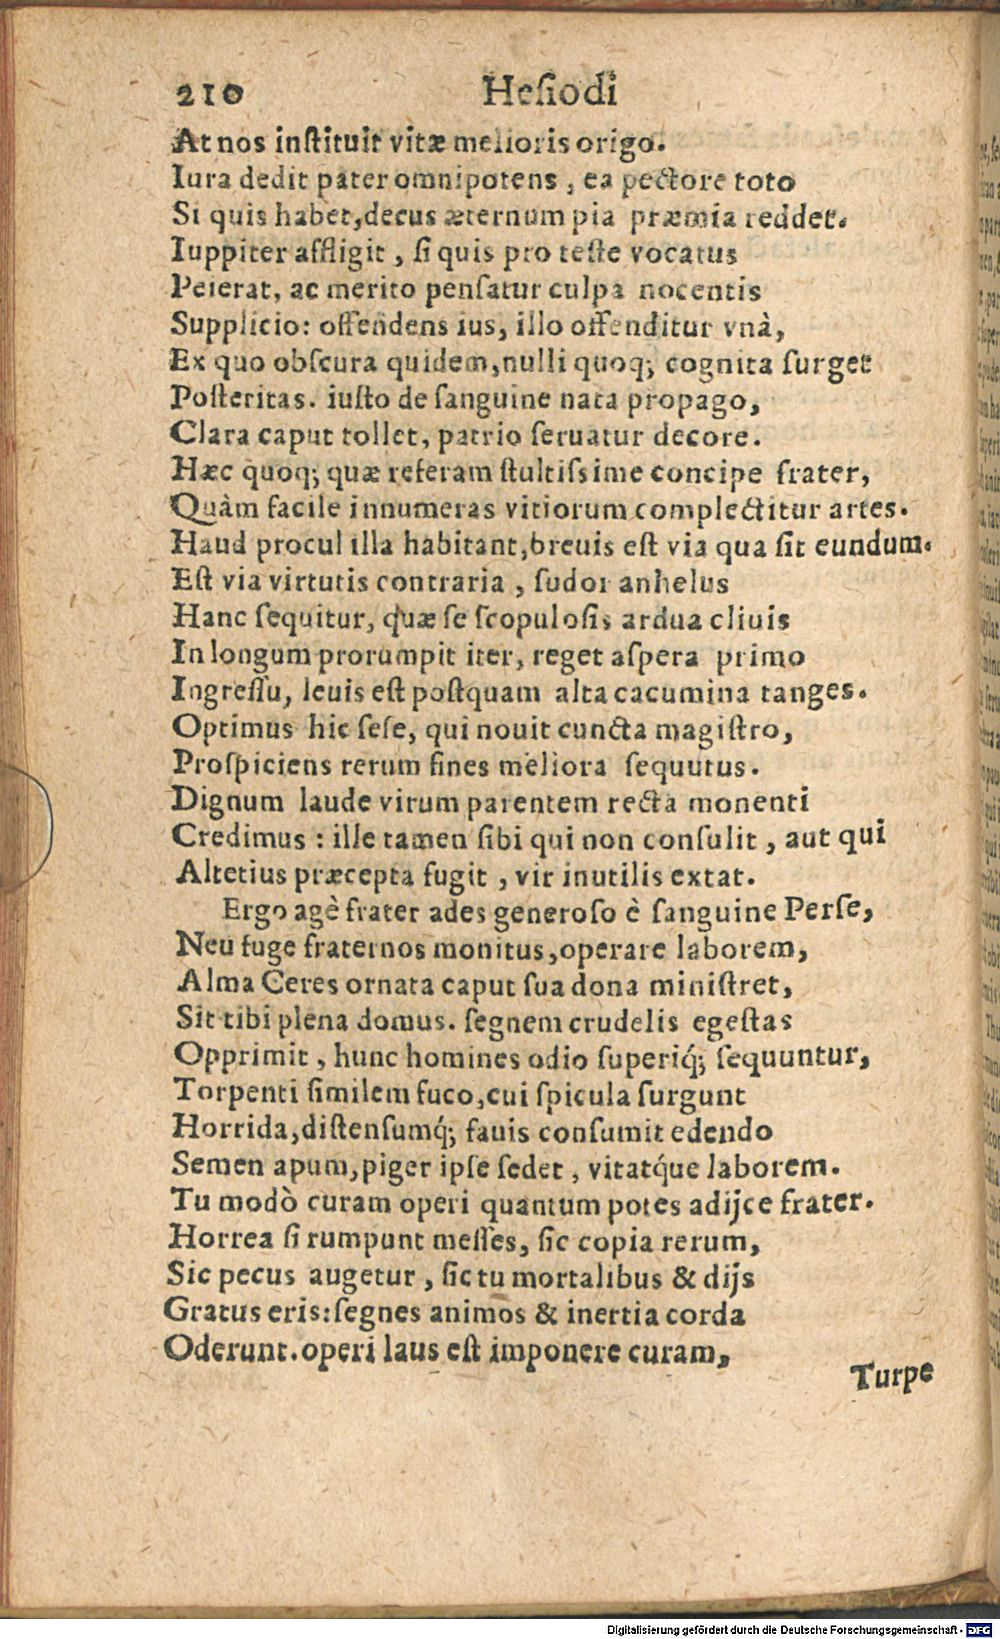 210 Heſiodi
At nos inſtituit vitæ melioris origo.
Iura dedit pater omnipotens, ea pectore toto
Si quis habet, decus æternum pia præmia reddet.
Iuppiter affligit, ſi quis pro teſte vocatus
Peierat, ac merito penſatur culpa nocentis
Supplicio: offendens ius, illo offenditur vnà,
Ex quo obſcura quidem, nulli quoq; cognita ſurget
Poſteritas. iuſto de ſanguine nata propago,
Clara caput tollet, patrio ſeruatur decore.
Hæc quoq; quæ referam ſtultiſsime concipe frater,
Quàm facile innumeras vitiorum complectitur artes.
Haud procul illa habitant, breuis eſt via qua ſit eundum.
Eſt via virtutis contraria, ſudor anhelus
Hanc ſequitur, quæ ſe ſcopuloſis ardua cliuis
In longum prorumpit iter, reget aſpera primo
Ingreſſu, leuis eſt poſtquam alta cacumina tanges.
Optimus hic ſeſe, qui nouit cuncta magiſtro,
Proſpiciens rerum fines meliora ſequutus.
Dignum laude virum parentem recta monenti
Credimus: ille tamen ſibi qui non conſulit, aut qui
Altetius præcepta fugit, vir inutilis extat.
Ergo agè frater ades generoſo è ſanguine Perſe,
Neu fuge fraternos monitus, operare laborem,
Alma Ceres ornata caput ſua dona miniſtret,
Sit tibi plena domus. ſegnem crudelis egeſtas
Opprimit, hunc homines odio ſuperiq́; ſequuntur,
Torpenti ſimilem fuco, cui ſpicula ſurgunt
Horrida, diſtenſumq́; fauis conſumit edendo
Semen apum, piger ipſe ſedet, vitatq́ue laborem.
Tu modò curam operi quantum potes adijce frater.
Horrea ſi rumpunt meſſes, ſic copia rerum,
Sic pecus augetur, ſic tu mortalibus & dijs
Gratus eris: ſegnes animos & inertia corda
Oderunt. operi laus eſt imponere curam,
Turpe
Digitalisierung gefördert durch die Deutsche Forschungsgemeinschaft - DFG